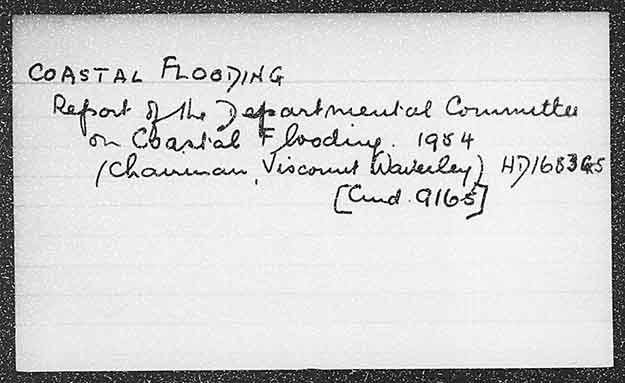 COASTAL FLOODING
Report of the Departmental Committee
on Coastal Flooding. 1954
(Chairman, Viscount Waverley) HD1683G5
[Cmd. 9165]